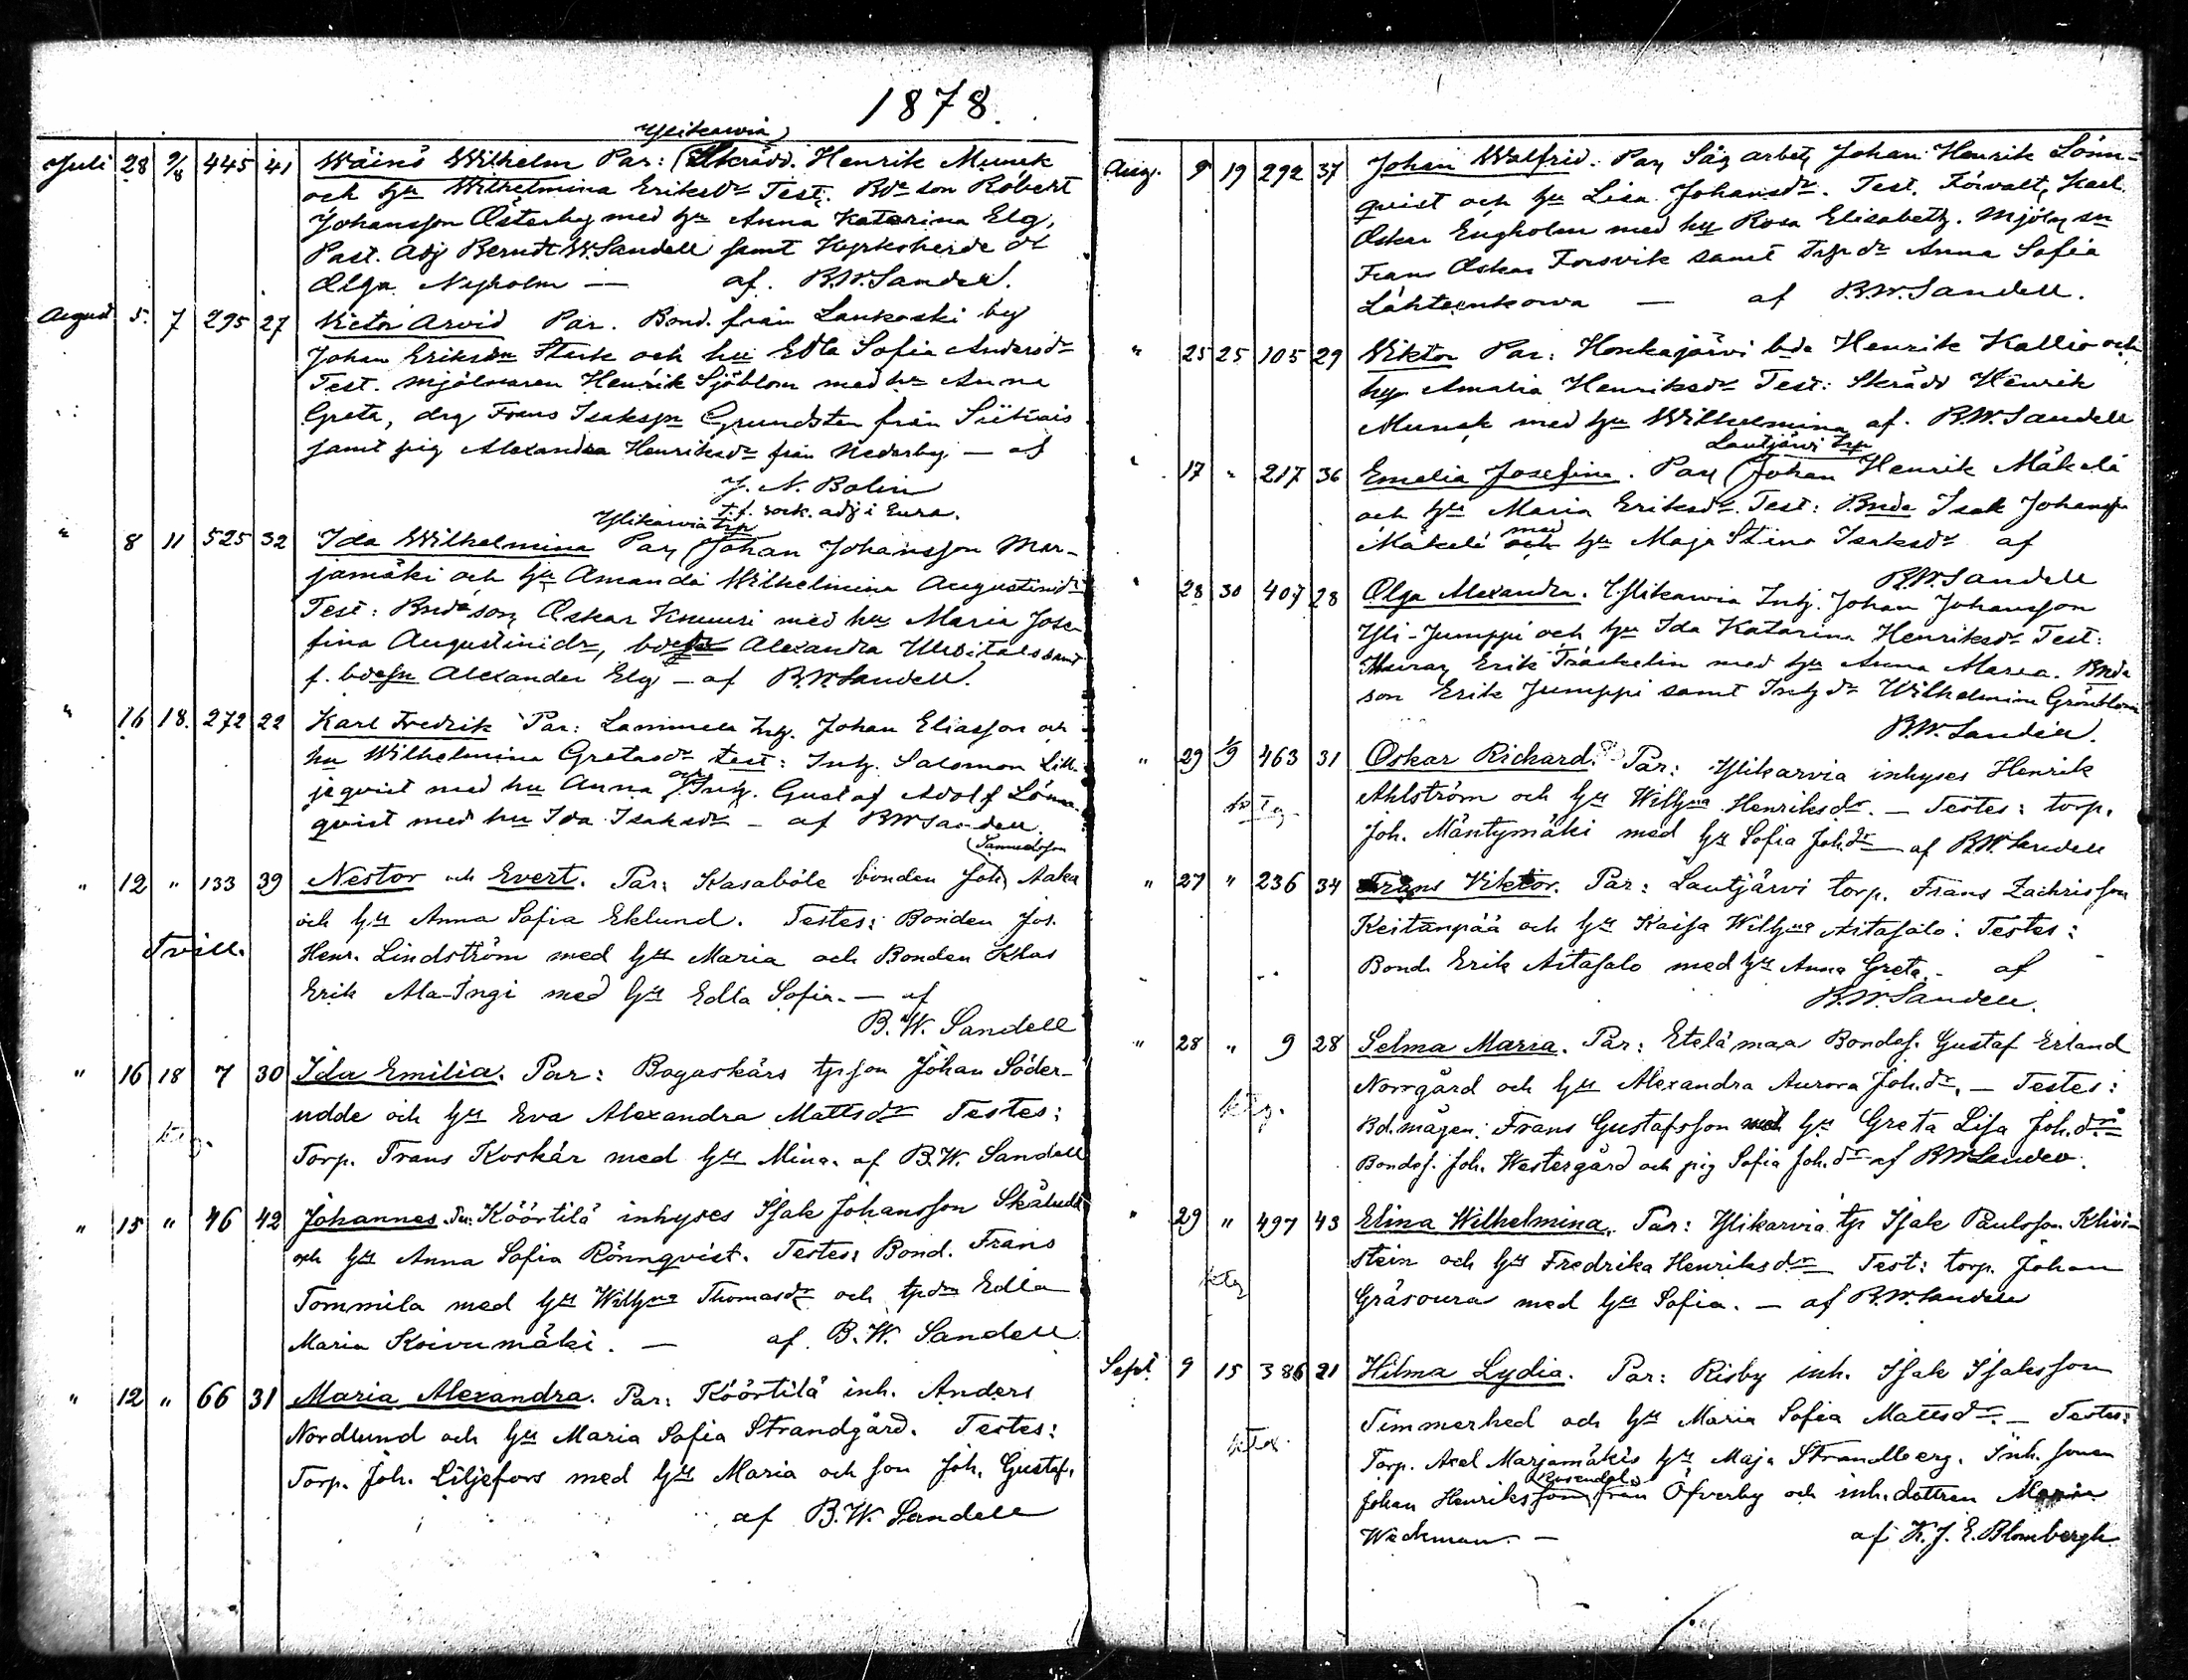 1878.
Ylikarvia
Juli 28 9/8 445 41 Wäinö Wilhelm Par: (Skrädd. Henrik Munck
och hu Wilhelmina Eriksdr Test. Bde son Robert
Johansson Österby med hu Anna Katarina Elg,
Past. Adj Berndt W. Sandell samt
Olga Nyholm — af. B.W. Sandell.
August 5. 7 295 27 Victor Arvid Par. Bond. från Lankoski by
Johan Eriksson Stark och hu Edla Sofia Andersdr
Test. mjölnaren Henrik Sjöblom med hu Anna
Greta, drg Frans Isaksson Grundsten från
samt pig Alexandra Henriksdr från Nederby — af
J. N. Bolin
t.f. sock. adj i Eura.
Ylikarvia trp
" 8 11 525 32 Ida Wilhelmina Par (Johan Johansson Mar-
jamäki och hu Amanda Wilhelmina Augustinidr
Test: Bndeson Oskar Knuusi med hu Maria Jose-
fina Augustinidr, Alexandra samt
f. Alexander Elg — af B.W. Sandell.
" 16 18. 272 22 Karl Fredrik Par: Lammela Inh. Johan Eliasson och
hu Wilhelmina Gretasdr test: Inh. Salomon Lill-
jeqvist med hu Anna och Inh. Gustaf Adolf Lönn-
qvist med hu Ida Isaksdr — af B W Sandell.
(Samuelsson
" 12 " 133 39 Nestor och Evert. Par: Kasaböle bonden Joh. Aaka
och hu Anna Sofia Eklund. Testes: Bonden Jos.
Tvill. Henr. Lindström med hu Maria och Bonden Klas
Erik Ala-Ingi med hu Edla Sofia. — af
B. W. Sandell
" 16 18 7 30 Ida Emilia. Par: Bagaskärs tpson Johan Söder-
udde och hu Eva Alexandra Mattsdr Testes:
Torp. Frans Koskär med hu Mina. af B.W. Sandell
" 15 " 46 42 Johannes. Köörtilä inhyses Isak Johansson
och hu Anna Sofia Rönnqvist. Testes: Bond. Frans
Tommila med hu Willhna Thomasdr och tpdrn Edla
Maria Koivumäki. — af B. W. Sandell.
" 12 " 66 31 Maria Alexandra. Par: Köörtilä inh. Anders
Nordlund och hu Maria Sofia Strandgård. Testes:
Torp. Joh. Liljefors med hu Maria och son Joh. Gustaf.
af B.W. Sandell
Aug. 9 19 292 37 Johan Walfrid. Par Såg arbet. Johan Henrik Lönn-
qvist och hu Lisa Johansdr. Test. Förvalt. Karl
Oskar Engholm med hu Rosa Elisabeth. Mjöln sn
Frans Oskar Forsvik samt trp dr Anna Sofia
Lähteenkorva — af B.W. Sandell.
" 25 25 105 29 Viktor Par: Honkajärvi bde Henrik Kallio och
hu Amalia Henriksdr Test: Skrädd Henrik
Munck med hu Wilhelmina af. B.W. Sandell
Lautjärvi trp
" 17 " 217 36 Emelia Josefina. Par (Johan Henrik Mäkelä
och hu Maria Eriksdr. Test: Bnde Isak Johansson
Mäkelä och med hu Maja Stina Isaksdr af
B.W. Sandell
" 28 30 407 28 Olga Alexandra. Ylikarvia Inh. Johan Johansson
Yli-Jumppi och hu Ida Katarina Henriksdr Test:
Erik Träskelin med hu Anna Maria. Bnde
son Erik Jumppi samt Inh dr Wilhelmina Grönblom
B.W. Sandell.
" 29 1/9 463 31 Oskar Richard. Par: Ylikarvia inhyses Henrik
Ahlström och hu Willhna Henriksdr. — Testes: torp.
Joh. Mäntymäki med hu Sofia Joh.dr — af B.W. Sandell
" 27 " 236 34 Frans Viktor. Par: Lautjärvi torp. Frans Zachrisson
Keitanpää och hu Kaisa Willhna Aitasalo. Testes:
Bond. Erik Aitasalo med hu Anna Greta. — af
B.W. Sandell.
" 28 " 9 28 Selma Maria. Par: Etelämaa Bondes. Gustaf Erland
Norrgård och hu Alexandra Aurora Joh.dr. — Testes:
Bd.mågen: Frans Gustafsson med hu Greta Lisa Joh.dr
Bondes. Joh. Westergård och pig Sofia Joh.dr af B W Sandell.
" 29 " 497 43 Elina Wilhelmina. Par: Ylikarvia tp Isak Paulsson Klivi-
stein och hu Fredrika Henriksdr Test: torp. Johan
Gräsoura med hu Sofia. — af B.W. Sandell
Sept. 9 15 386 21 Hilma Lydia. Par: Risby inh. Isak Isaksson
Timmerhed och hu Maria Sofia Mattsdr. — Testes:
Torp. Axel Marjamäkis hu Maja Strandberg. Inh. sonen
Johan Henriksson Rosendal från Öfverby och inh. dottren Maria
Weckman. — af K. J. E. Blombergh